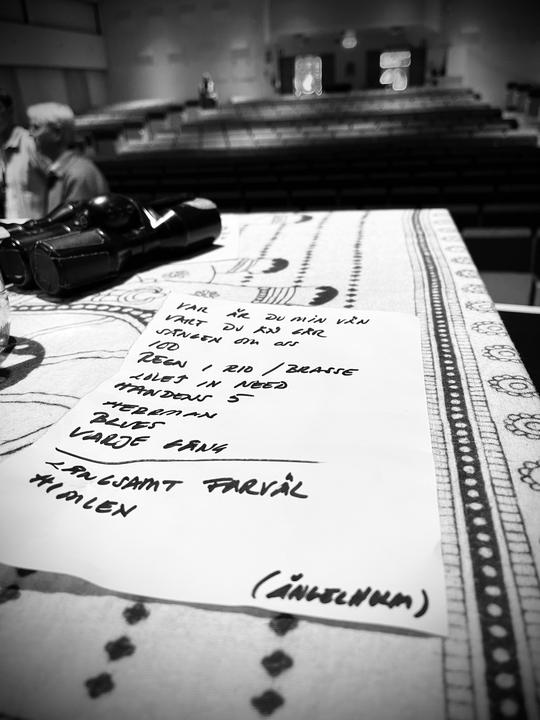 VAR ÄR DU MIN VÄN
VART DU ÄN GÅR
SÅNGEN OM OSS
100
REGN I RIO / BRASSE
LOLEJ IN NEED
HANDENS 5
HERRMAN
BLUES
VARJE GÅNG
LÅNGSAMT FARVÄL
HIMLEN
(ÄNGELHOLM)